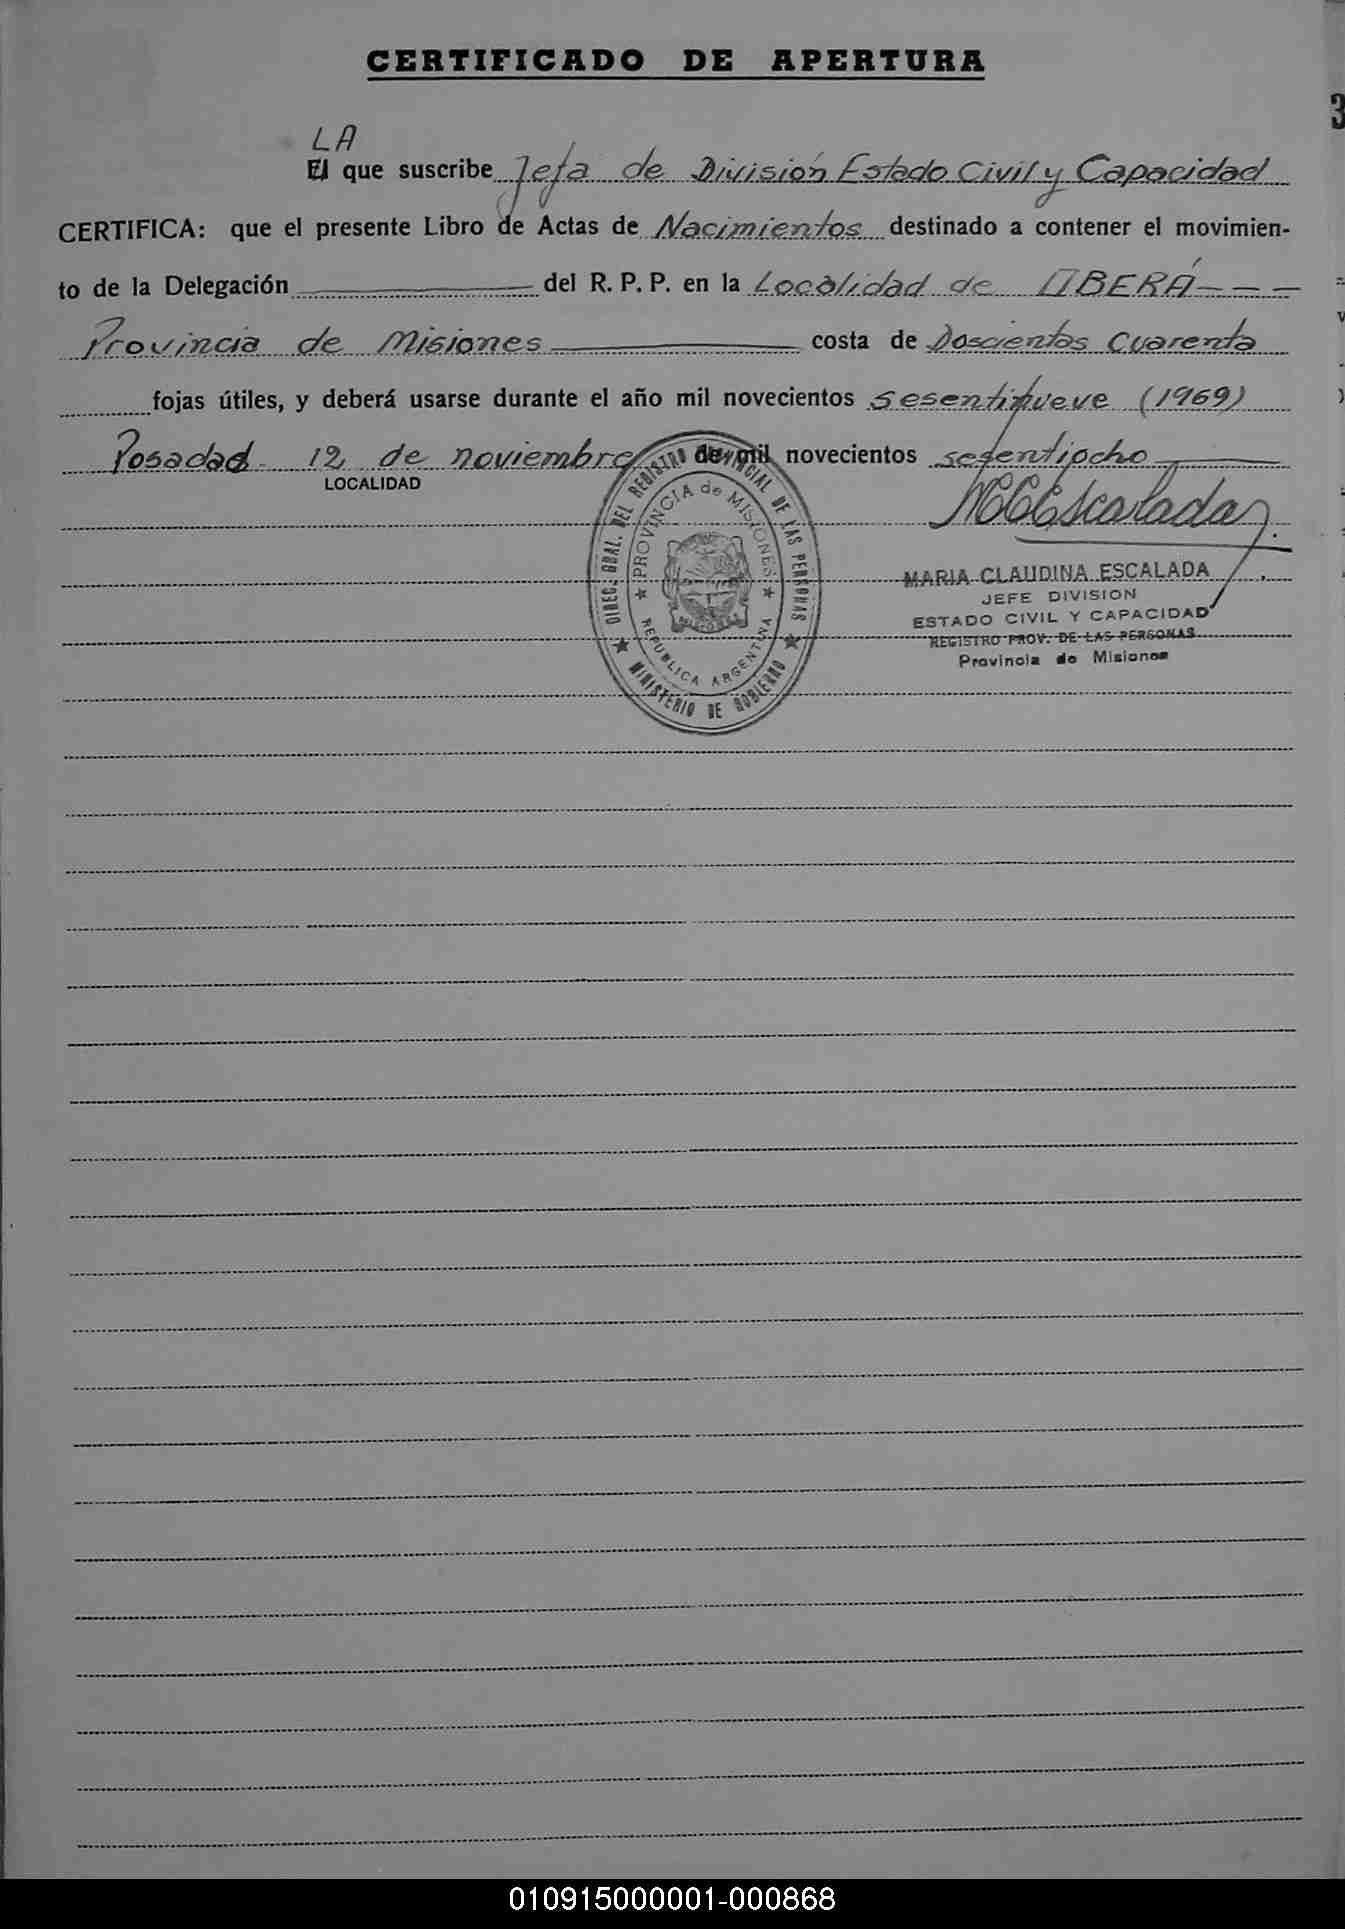 CERTIFICADO DE APERTURA
3
LA
El que suscribe Jefa de División Estado Civil y Capacidad
CERTIFICA: que el presente Libro de Actas de Nacimientos destinado a contener el movimien-
to de la Delegación del R. P. P. en la Localidad de OBERÁ---
Provincia de Misiones costa de Doscientos Cuarenta
fojas útiles, y deberá usarse durante el año mil novecientos sesentinueve (1969)
Posadas 12 de noviembre de mil novecientos sesentiocho
LOCALIDAD
MCCEscalada
DIREC. GRAL. DEL REGISTRO PROVINCIAL DE LAS PERSONAS
PROVINCIA de MISIONES
REPUBLICA ARGENTINA
MINISTERIO DE GOBIERNO
MARIA CLAUDINA ESCALADA
JEFE DIVISION
ESTADO CIVIL Y CAPACIDAD
REGISTRO PROV. DE LAS PERSONAS
Provincia de Misiones
010915000001-000868